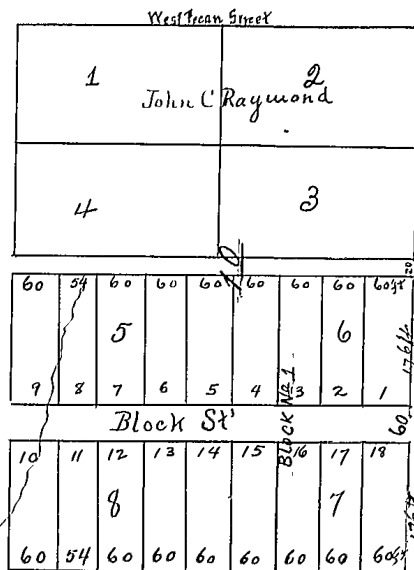 West Pecan Street
1 2
John C Raymond
4 3
10
20
60 54 60 60 60 60 60 60 60ft
5 6
176ft
9 8 7 6 5 4 3 2 1
Block St'
Block No 1
60
10 11 12 13 14 15 16 17 18
8 7
176ft
60 54 60 60 60 60 60 60 60ft